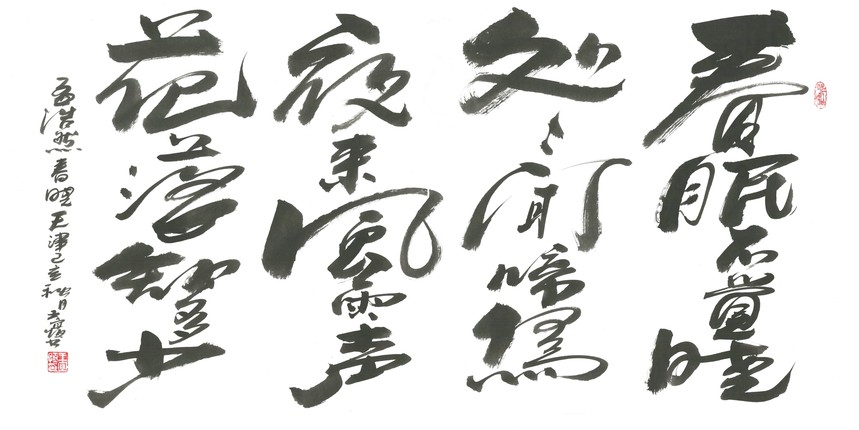 春眠不觉晓
处处闻啼鸟
夜来风雨声
花落知多少
孟浩然春晓天津己亥秋月